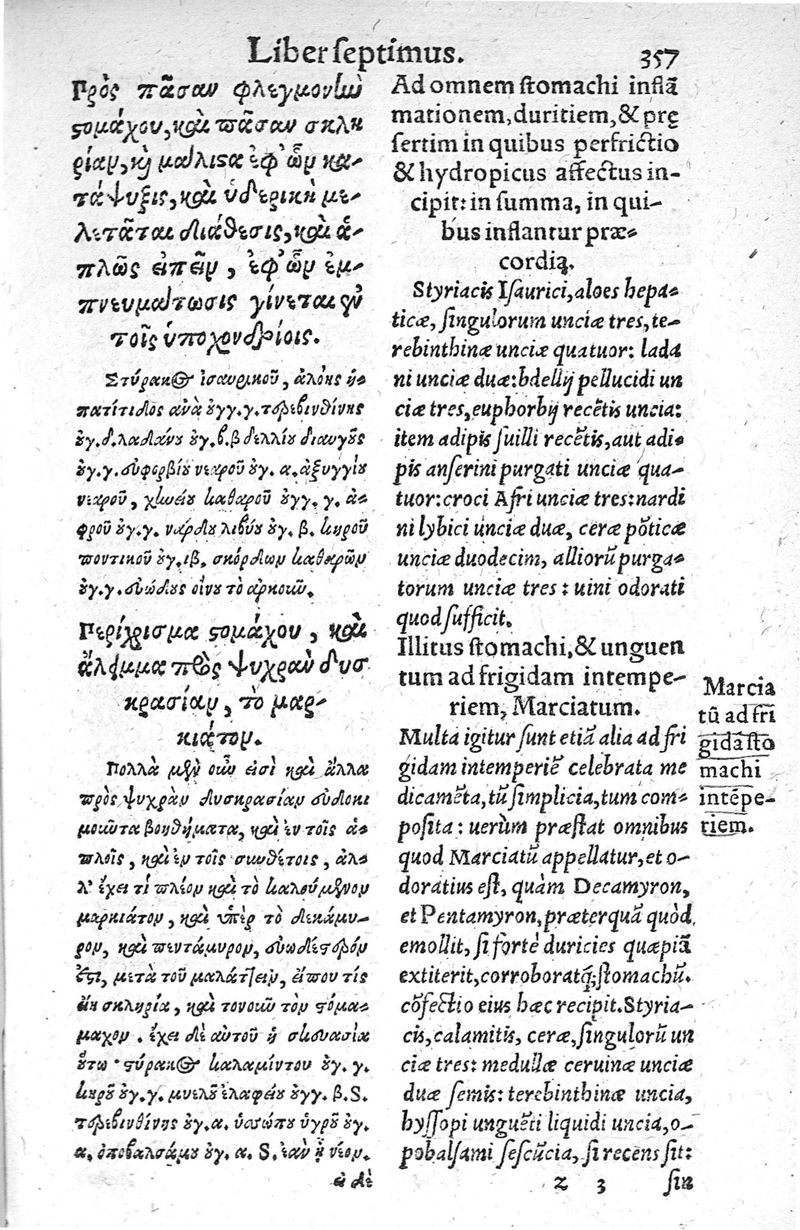 Liber septimus.
357
Πρὸς πᾶσαν φλεγμονὴν
στομάχου, καὶ πᾶσαν σκλη
ρίαν, κὴ μάλιστα ἐφ' ὧν κα-
τάψυξις, καὶ ὑδερικὴ με-
λετᾶται διάθεσις, καὶ ἁ-
πλῶς εἰπεῖν, ἐφ' ὧν ἐμ-
πνευμάτωσις γίνεται ἐν
τοῖς ὑποχονδρίοις.
Στύρακος ἰσαυρικοῦ, ἀλόης ἡ-
πατίτιδος ἀνὰ ουγγ. γ. τερεβινθίνης
ουγ. δ. λαδάνου ουγ. β. βδελλίου διαυγοῦς
ουγ. γ. εὐφορβίου νεαροῦ ουγ. α. ἀξυγγίου
νεαροῦ, χηνείου καθαροῦ ουγγ. γ. ἄ-
φρου ουγ. γ. νάρδου λιβύου ουγ. β. κηροῦ
ποντικοῦ ουγ. ιβ. σκόρδων καθαρῶν
ουγ. γ. εὐώδους οἴνου τὸ ἀρκοῦν.
Περίχρισμα στομάχου, καὶ
ἄλειμμα πρὸς ψυχρὰν δυσ
κρασίαν, τὸ μαρ-
κιάτον.
Πολλὰ μὲν οὖν εἰσὶ καὶ ἄλλα
πρὸς ψυχρὰν δυσκρασίαν εὐδοκι
μοῦντα βοηθήματα, καὶ ἐν τοῖς ἁ-
πλοῖς, καὶ ἐν τοῖς συνθέτοις, ἀλ-
λ' ἔχει τὶ πλέον καὶ τὸ καλούμενον
μαρκιάτον, καὶ ὑπὲρ τὸ δεκάμυ-
ρον, καὶ πεντάμυρον, εὐωδέστερόν
ἐστι, μετὰ τοῦ μαλάττειν, εἴπου τίς
εἴη σκληρία, καὶ τονοῦν τὸν στόμα-
μαχον. ἔχει δὲ αὐτοῦ ἡ σκευασία
οὕτω· στύρακος καλαμίντου ουγ. γ.
κηροῦ ουγ. γ. μυελοῦ ἐλαφείου ουγγ. β. S.
τερεβινθίνης ουγ. α. ὑσώπου ὑγροῦ ουγ.
α. ὀποβαλσάμου ουγ. α. S. ἐὰν ᾖ νέον.
εἰ δὲ
Ad omnem stomachi inflã
mationem, duritiem, & prę
sertim in quibus perfrictio
& hydropicus affectus in-
cipit: in summa, in qui-
bus inflantur præ-
cordią.
Styracis Isaurici, aloes hepa-
ticæ, singulorum unciæ tres, te-
rebinthinæ unciæ quatuor: lada
ni unciæ duæ: bdellij pellucidi un
ciæ tres, euphorbij recẽtis uncia:
item adipis suilli recẽtis, aut adi-
pis anserini purgati unciæ qua-
tuor: croci Afri unciæ tres: nardi
ni lybici unciæ duæ, ceræ põticæ
unciæ duodecim, alliorũ purga-
torum unciæ tres: uini odorati
quod sufficit.
Illitus stomachi, & unguen
tum ad frigidam intempe-
riem, Marciatum.
Multa igitur sunt etiã alia ad fri
gidam intemperiẽ celebrata me
dicamẽta, tũ simplicia, tum com-
posita: uerùm præstat omnibus
quod Marciatũ appellatur, et o-
doratius est, quàm Decamyron,
et Pentamyron, præterquã quòd
emollit, si fortè duricies quæpiã
extiterit, corroboratq́; stomachũ.
cõfectio eius hæc recipit. Styria-
cis, calamitis, ceræ, singulorũ un
ciæ tres: medullæ ceruinæ unciæ
duæ semis: terebinthinæ uncia,
hyssopi unguẽti liquidi uncia, o-
pobalsami sescũcia, si recens sit:
z 3 sin
Marcia
tũ ad fri
gidã sto
machi
intẽpe-
riem.